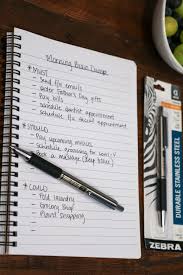 Morning Brain Dump
* MUST
- send f/u emails
- order Father's Day gifts
- Pay bills
- schedule dentist appointment
- schedule f/u doctor appointment
* SHOULD
- Pay upcoming invoices
- schedule grooming for
- Book a massage
* COULD
- Fold laundry
- Grocery Shop
- Plant Shopping
DURABLE STAINLESS STEEL
ZEBRA